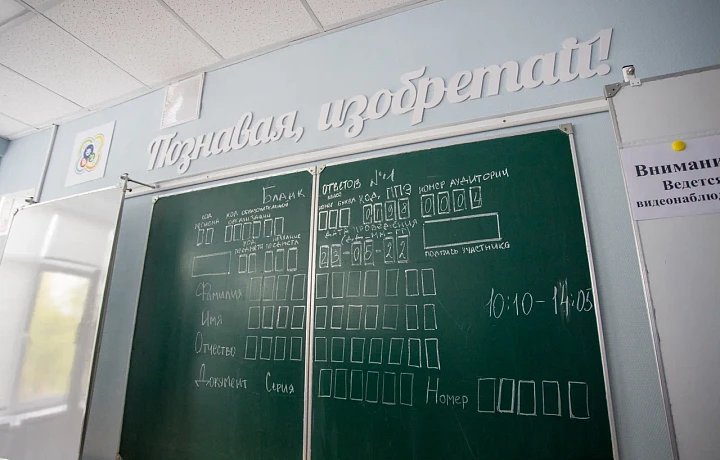 Познавая, изобретай!
Внимани
Ведется
видеонаблю
Бланк ответов №1
код региона
код образовательной организации
номер буква
код ППЭ
номер аудитории
0002
дата проведения
23-05-22
подпись участника
10:10-14:05
Фамилия
Имя
Отчество
Документ Серия Номер